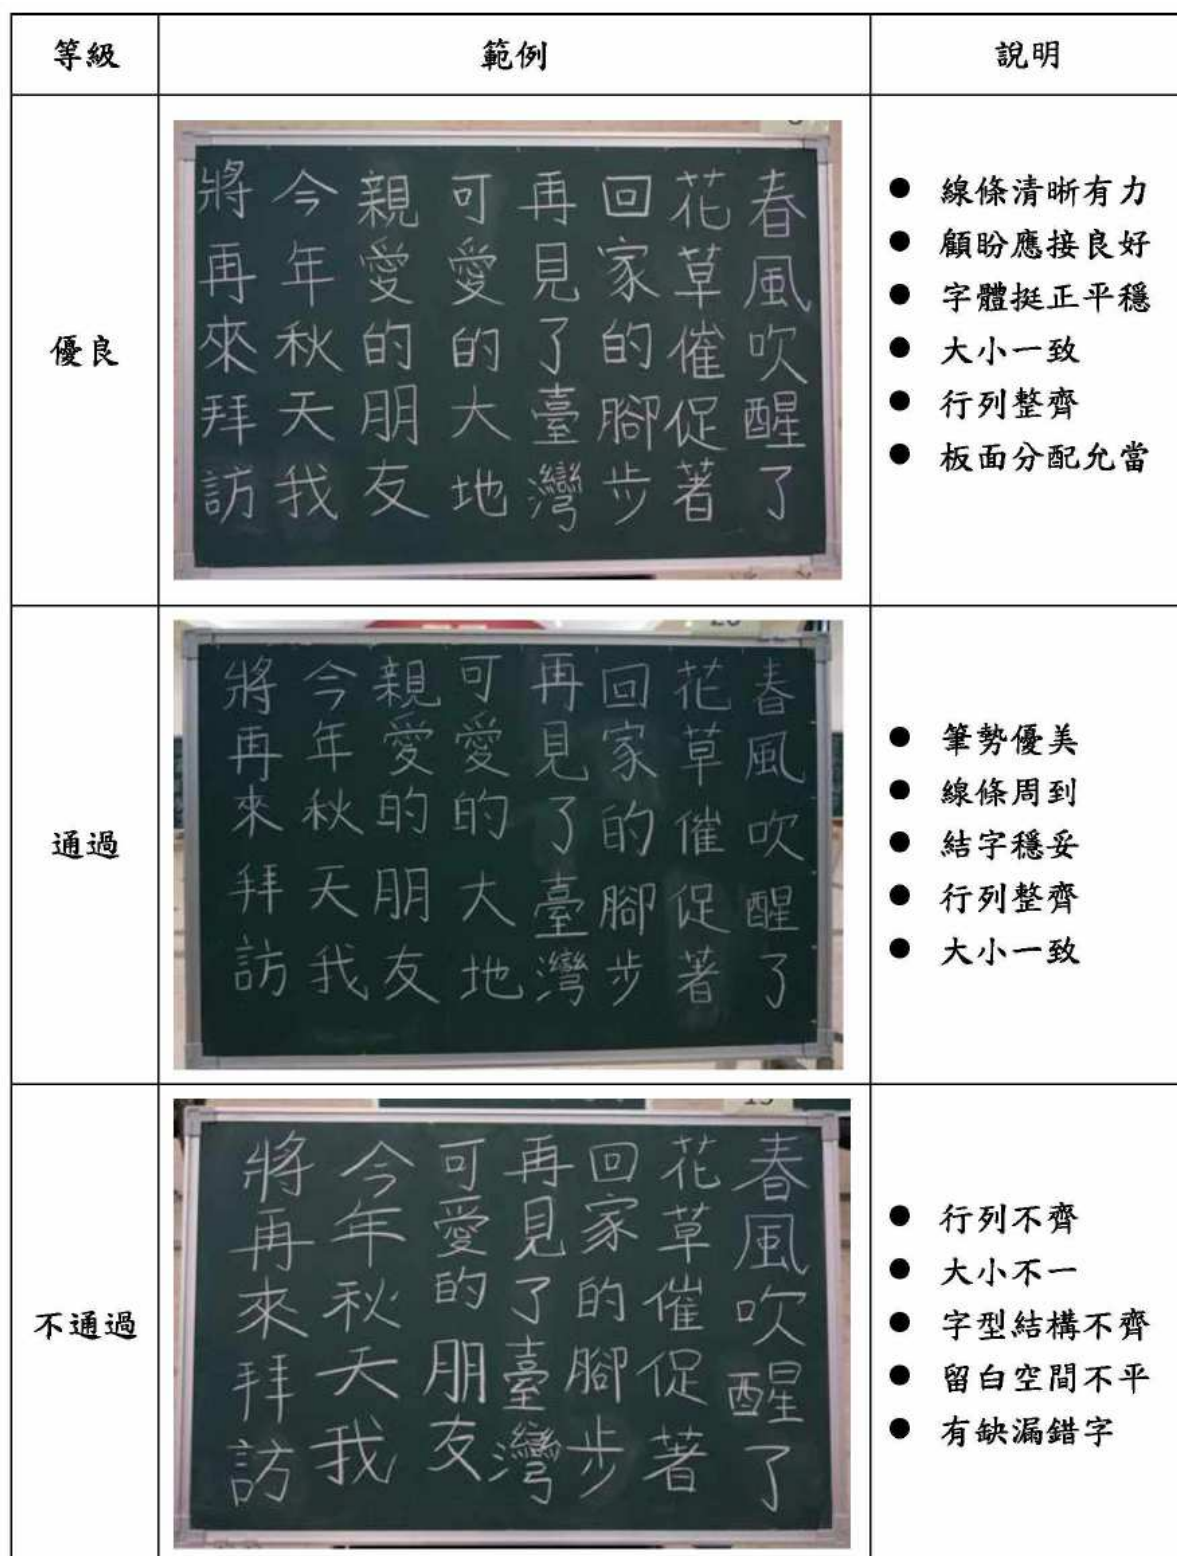 等級 範例 說明
優良
春風吹醒了
花草催促著
回家的腳步
再見了臺灣
可愛的大地
親愛的朋友
今年秋天我
將再來拜訪
● 線條清晰有力
● 顧盼應接良好
● 字體挺正平穩
● 大小一致
● 行列整齊
● 板面分配允當
通過
春風吹醒了
花草催促著
回家的腳步
再見了臺灣
可愛的大地
親愛的朋友
今年秋天我
將再來拜訪
● 筆勢優美
● 線條周到
● 結字穩妥
● 行列整齊
● 大小一致
不通過
春風吹醒了
花草催促著
回家的腳步
再見了臺灣
可愛的朋友
今年秋天我
將再來拜訪
● 行列不齊
● 大小不一
● 字型結構不齊
● 留白空間不平
● 有缺漏錯字